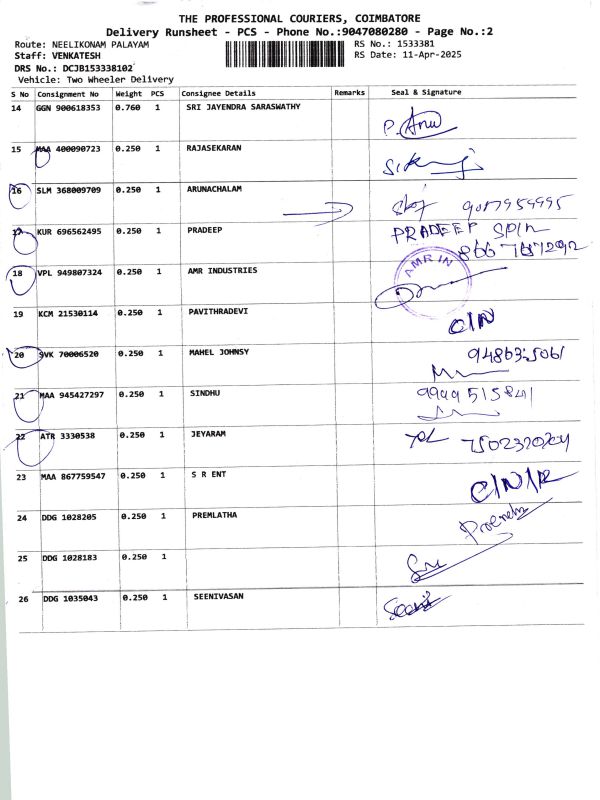 THE PROFESSIONAL COURIERS, COIMBATORE
Delivery Runsheet - PCS - Phone No.:9047080280 - Page No.:2
Route: NEELIKONAM PALAYAM RS No.: 1533381
Staff: VENKATESH RS Date: 11-Apr-2025
DRS No.: DCJB153338102
Vehicle: Two Wheeler Delivery
S No Consignment No Weight PCS Consignee Details Remarks Seal & Signature
14 GGN 900618353 0.760 1 SRI JAYENDRA SARASWATHY
P. Anu
15 MAA 400090723 0.250 1 RAJASEKARAN
16 SLM 368009709 0.250 1 ARUNACHALAM
17 KUR 696562495 0.250 1 PRADEEP PRADEEP
18 VPL 949807324 0.250 1 AMR INDUSTRIES AMR IN
19 KCM 21530114 0.250 1 PAVITHRADEVI
C/N
20 SVK 70006520 0.250 1 MAHEL JOHNSY
21 MAA 945427297 0.250 1 SINDHU
22 ATR 3330538 0.250 1 JEYARAM
23 MAA 867759547 0.250 1 S R ENT
C/N/R
24 DDG 1028205 0.250 1 PREMLATHA
25 DDG 1028183 0.250 1
26 DDG 1035043 0.250 1 SEENIVASAN